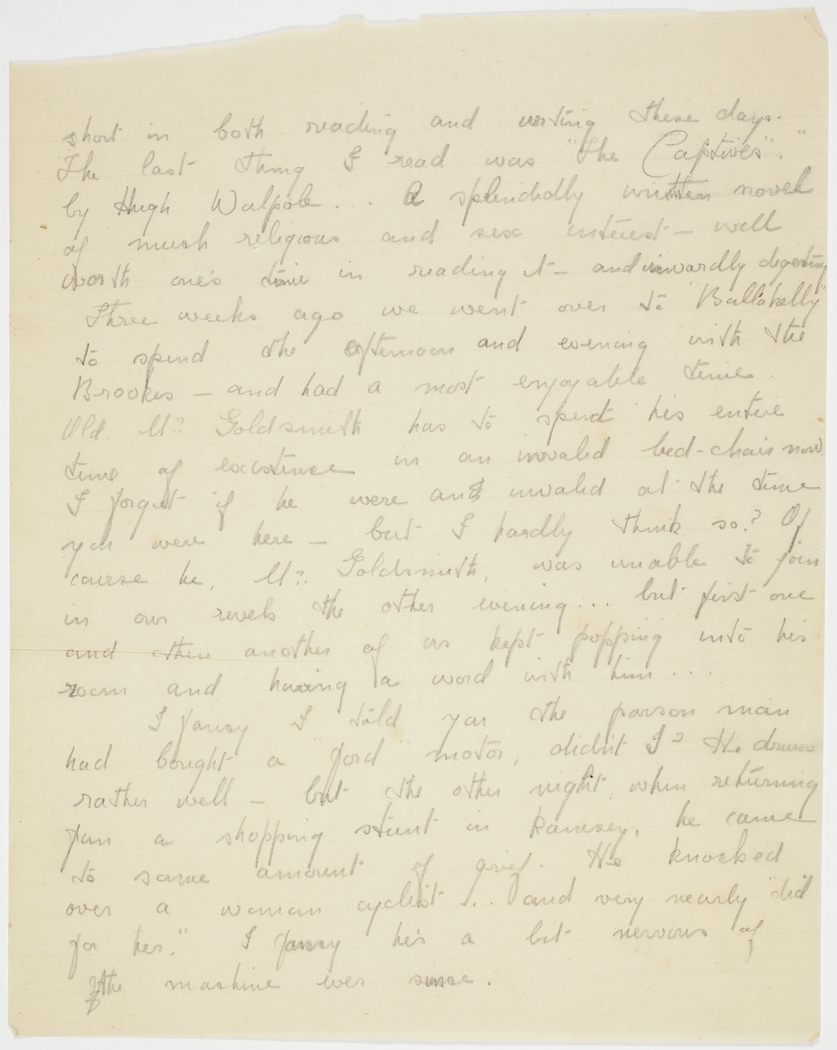 short in both reading and writing these days.
The last thing I read was "The Captives"."
by Hugh Walpole . . . A splendidly written novel
of much religious and sex interest – well
worth one's time in reading it – and inwardly digesting
Three weeks ago we went over to "Ballakelly"
to spend the afternoon and evening with the
Brookes – and had a most enjoyable time.
Old Mr. Goldsmith has to spend his entire
time of existence in an invalid bed-chair now.
I forget if he were an invalid at the time
you were here – but I hardly think so? Of
course he, Mr. Goldsmith, was unable to join
in our revels the other evening... but first one
and then another of us kept popping into his
room and having a word with him ...
I fancy I told you the parson man
had bought a "Ford" motor, didn't I? He drives
rather well – but the other night, when returning
from a shopping stunt in Ramsey, he came
to some amount of grief. He knocked
over a woman cyclist ... and very nearly "did
for her." I fancy he's a bit nervous of
the machine ever since.